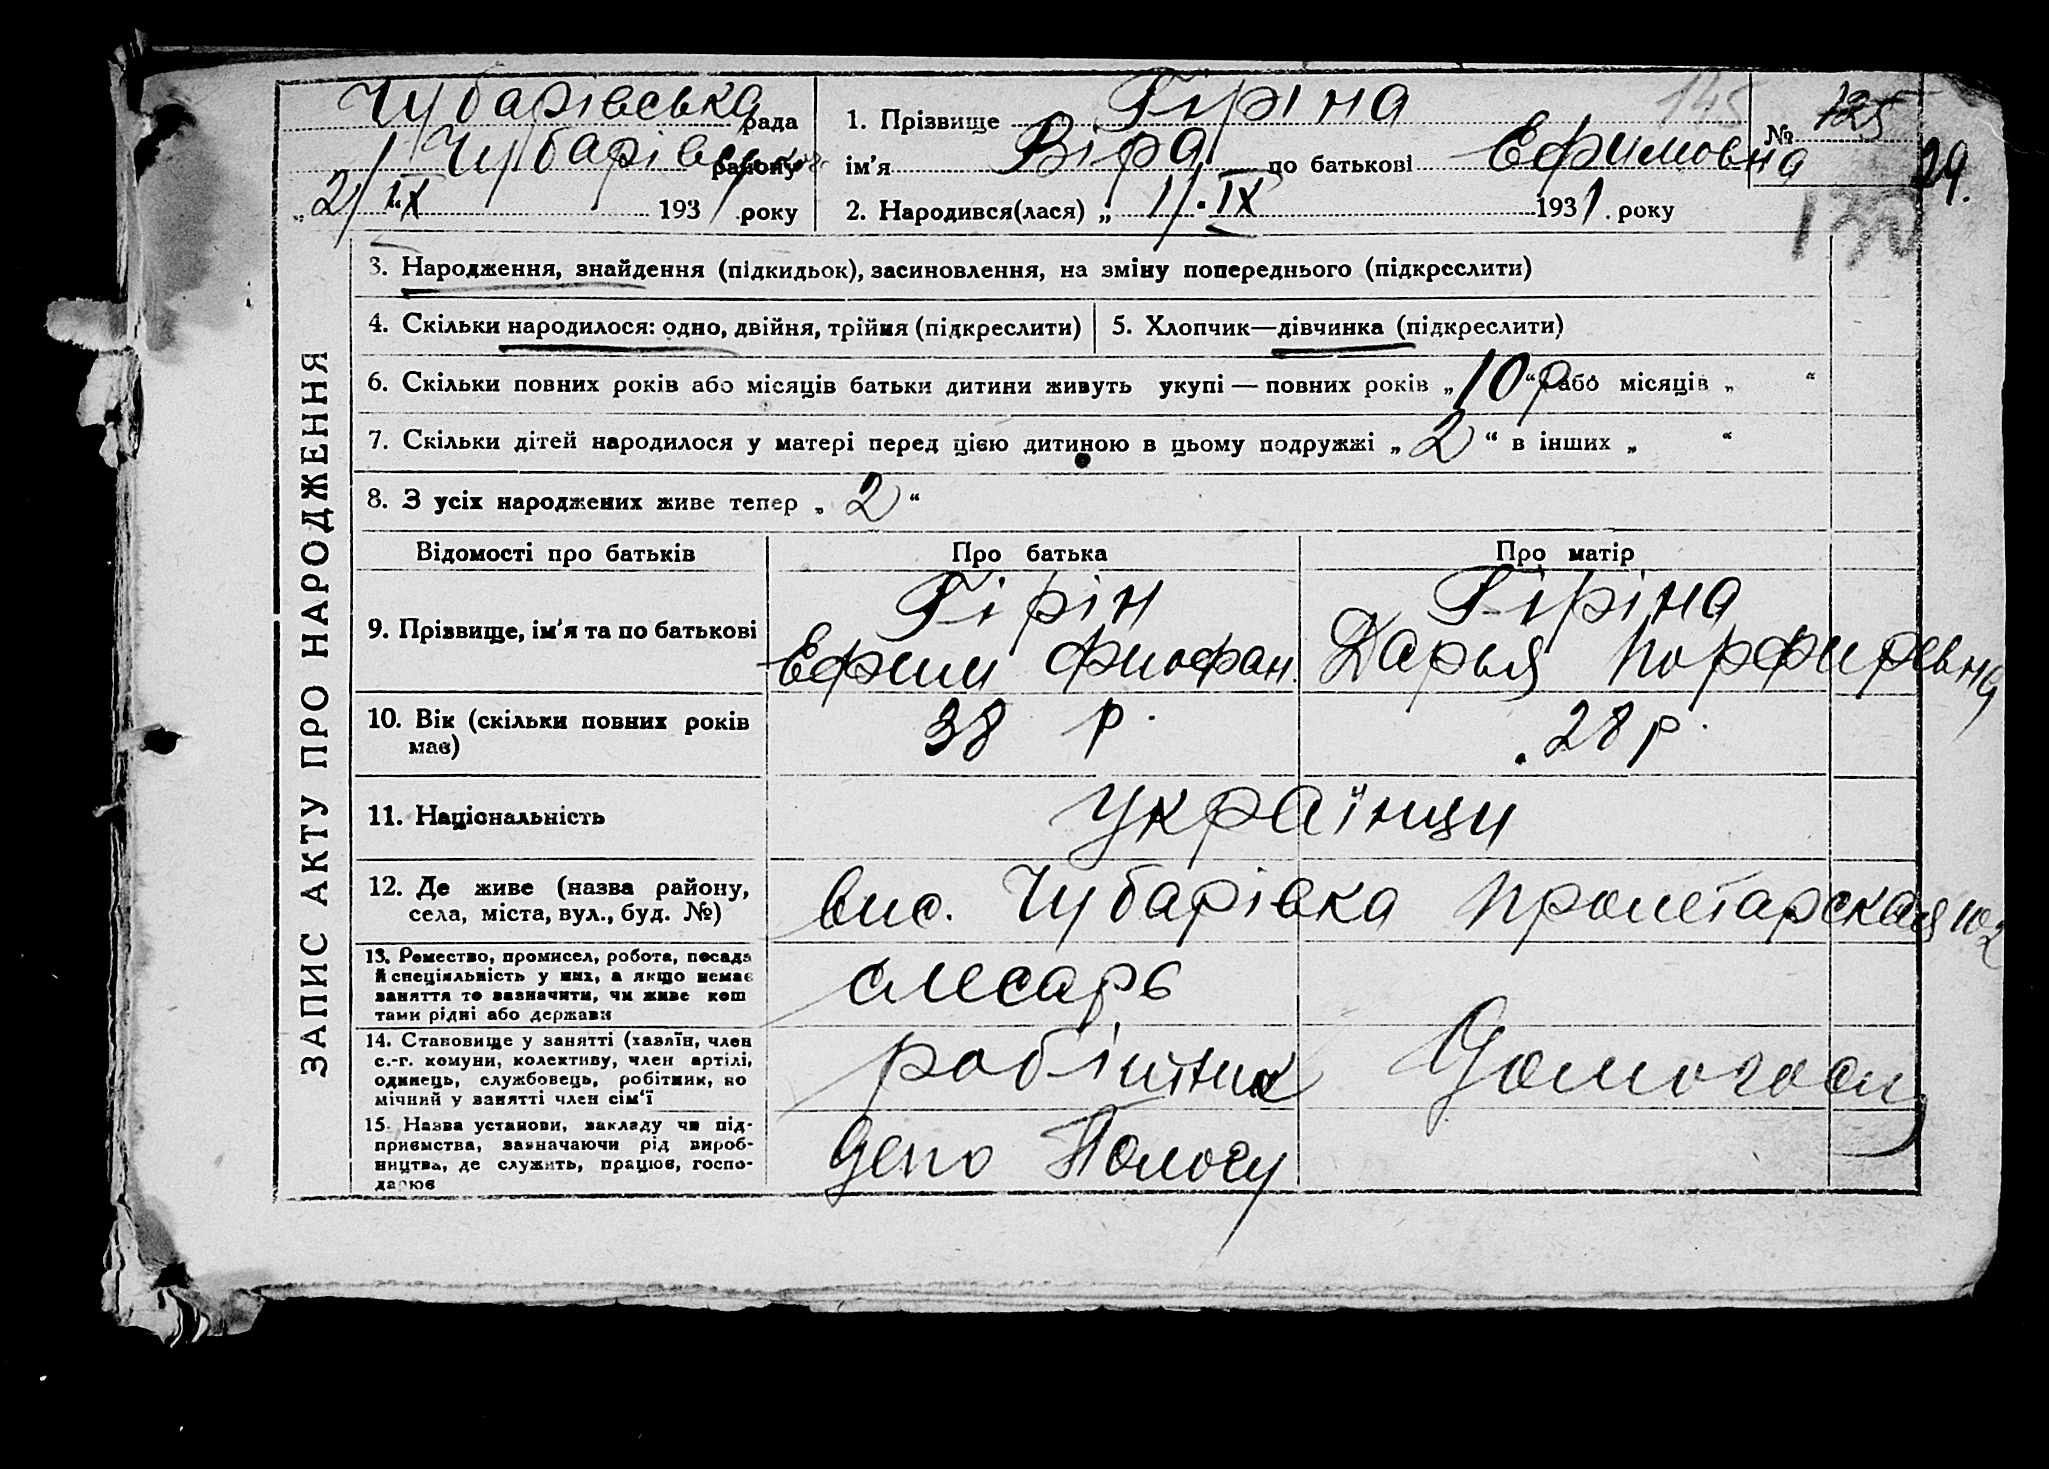 Чубарівська рада
Чубарівськ району
„2/ IX 1931 року
1. Прізвище Гіріна
ім'я Віра по батькові Ефимовна
2. Народився(лася) „1/IX 1931 року
145
№ 125
29.
130
ЗАПИС АКТУ ПРО НАРОДЖЕННЯ
3. Народження, знайдення (підкидьок), засиновлення, на зміну попереднього (підкреслити)
4. Скільки народилося: одно, двійня, трійня (підкреслити)
5. Хлопчик—дівчинка (підкреслити)
6. Скільки повних років або місяців батьки дитини живуть укупі — повних років „10 р“ або місяців „ “
7. Скільки дітей народилося у матері перед цією дитиною в цьому подружжі „2“ в інших „ “
8. З усіх народжених живе тепер „2“
Відомості про батьків Про батька Про матір
9. Прізвище, ім'я та по батькові
Гірін
Ефим Фиофан.
Гіріна
Дарья Порфиревна
10. Вік (скільки повних років
має)
38 р.
28 р.
11. Національність
українци
12. Де живе (назва району,
села, міста, вул., буд. №)
вис. Чубарівка Пролетарская 102
13. Ремество, промисел, робота, посада
й спеціяльність у них, а якщо немає
заняття то зазначити, чи живе кош
тами рідні або держави
слесарь
14. Становище у занятті (хазяїн, член
с.-г. комуни, колективу, член артілі,
одинець, службовець, робітник, по
мічний у занятті член сім'ї
робітник
Домогоси
15. Назва установи, закладу чи під-
приємства, зазначаючи рід вироб-
ництва, де служить, працює, госпо-
дарює
депо Пологи